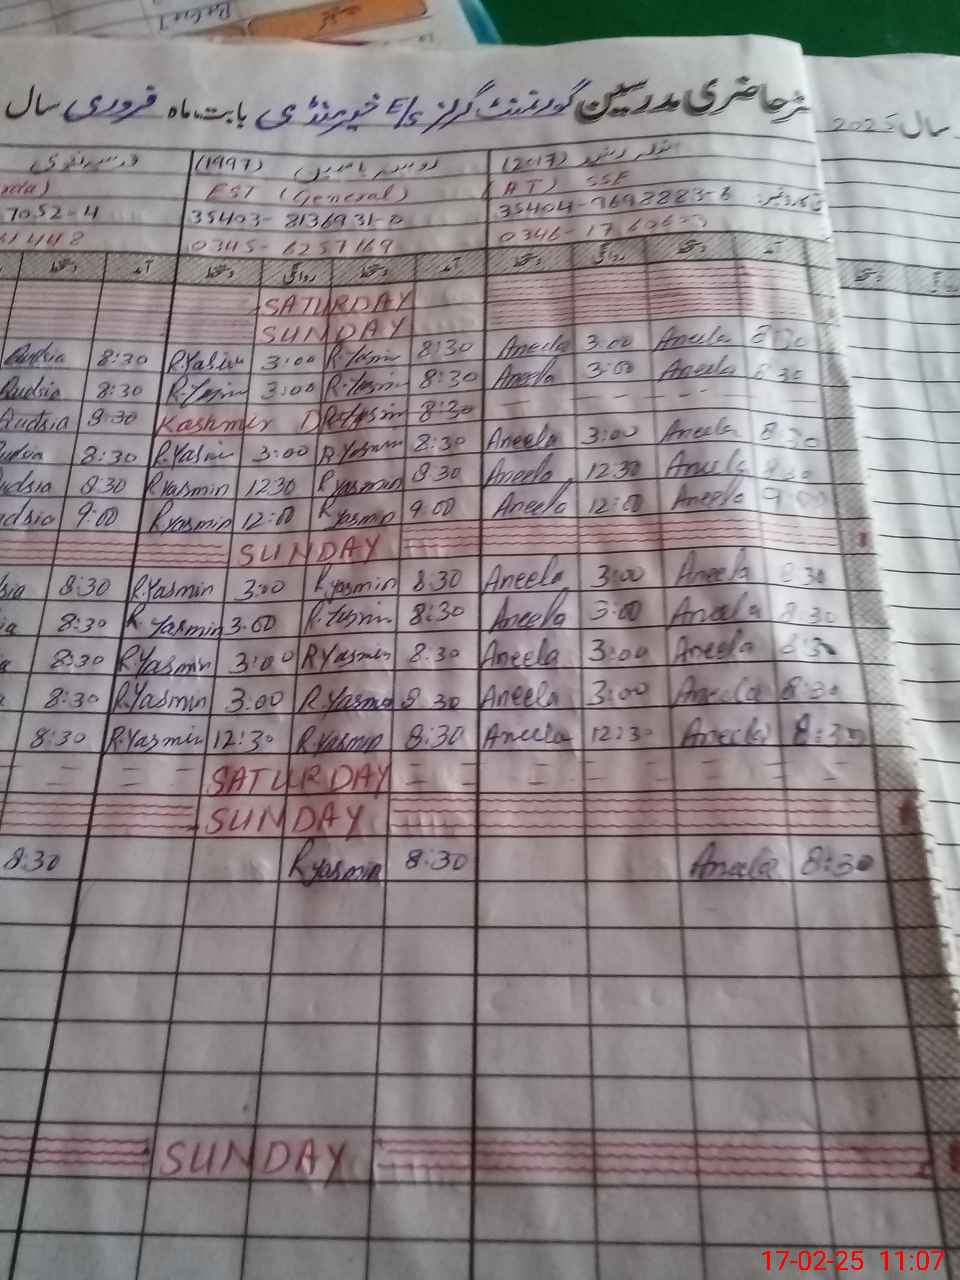 حاضری مدرسین گورنمنٹ گرلز E/S خیرمنڈی بابت ماہ فروری سال
سال 2025
(1997) (2017)
EST (General) (AT) SSE
7052-4 35403-8136931-0
61448 0345-6257169
دستخط آمد دستخط روانگی دستخط آمد دستخط روانگی دستخط آمد
SATURDAY
SUNDAY
Qudsia 8:30 R.Yasmin 3:00 R.Yasmin 8:30 Aneela 3:00 Aneela 8:30
Qudsia 8:30 R.Yasmin 3:00 R.Yasmin 8:30 Aneela 3:00 Aneela 8:30
Qudsia 8:30 Kashmir D R.Yasmin 8:30
8:30 R.Yasmin 3:00 R.Yasmin 8:30 Aneela 3:00 Aneela 8:30
udsia 8:30 R.yasmin 12:30 R.yasmin 8:30 Aneela 12:30 Aneela 8:30
udsia 9:00 R.yasmin 12:00 R.yasmin 9:00 Aneela 12:00 Aneela 9:00
SUNDAY
sia 8:30 R.Yasmin 3:00 R.yasmin 8:30 Aneela 3:00 Aneela 8:30
ia 8:30 R.Yasmin 3:00 R.Yasmin 8:30 Aneela 3:00 Aneela 8:30
a 8:30 R.Yasmin 3:00 R.Yasmin 8:30 Aneela 3:00 Aneela 8:30
8:30 R.Yasmin 3:00 R.Yasmin 8:30 Aneela 3:00 Aneela 8:30
8:30 R.Yasmin 12:30 R.yasmin 8:30 Aneela 12:30 Aneela 8:30
SATURDAY
SUNDAY
8:30 R.yasmin 8:30 Aneela 8:30
SUNDAY
17-02-25 11:07